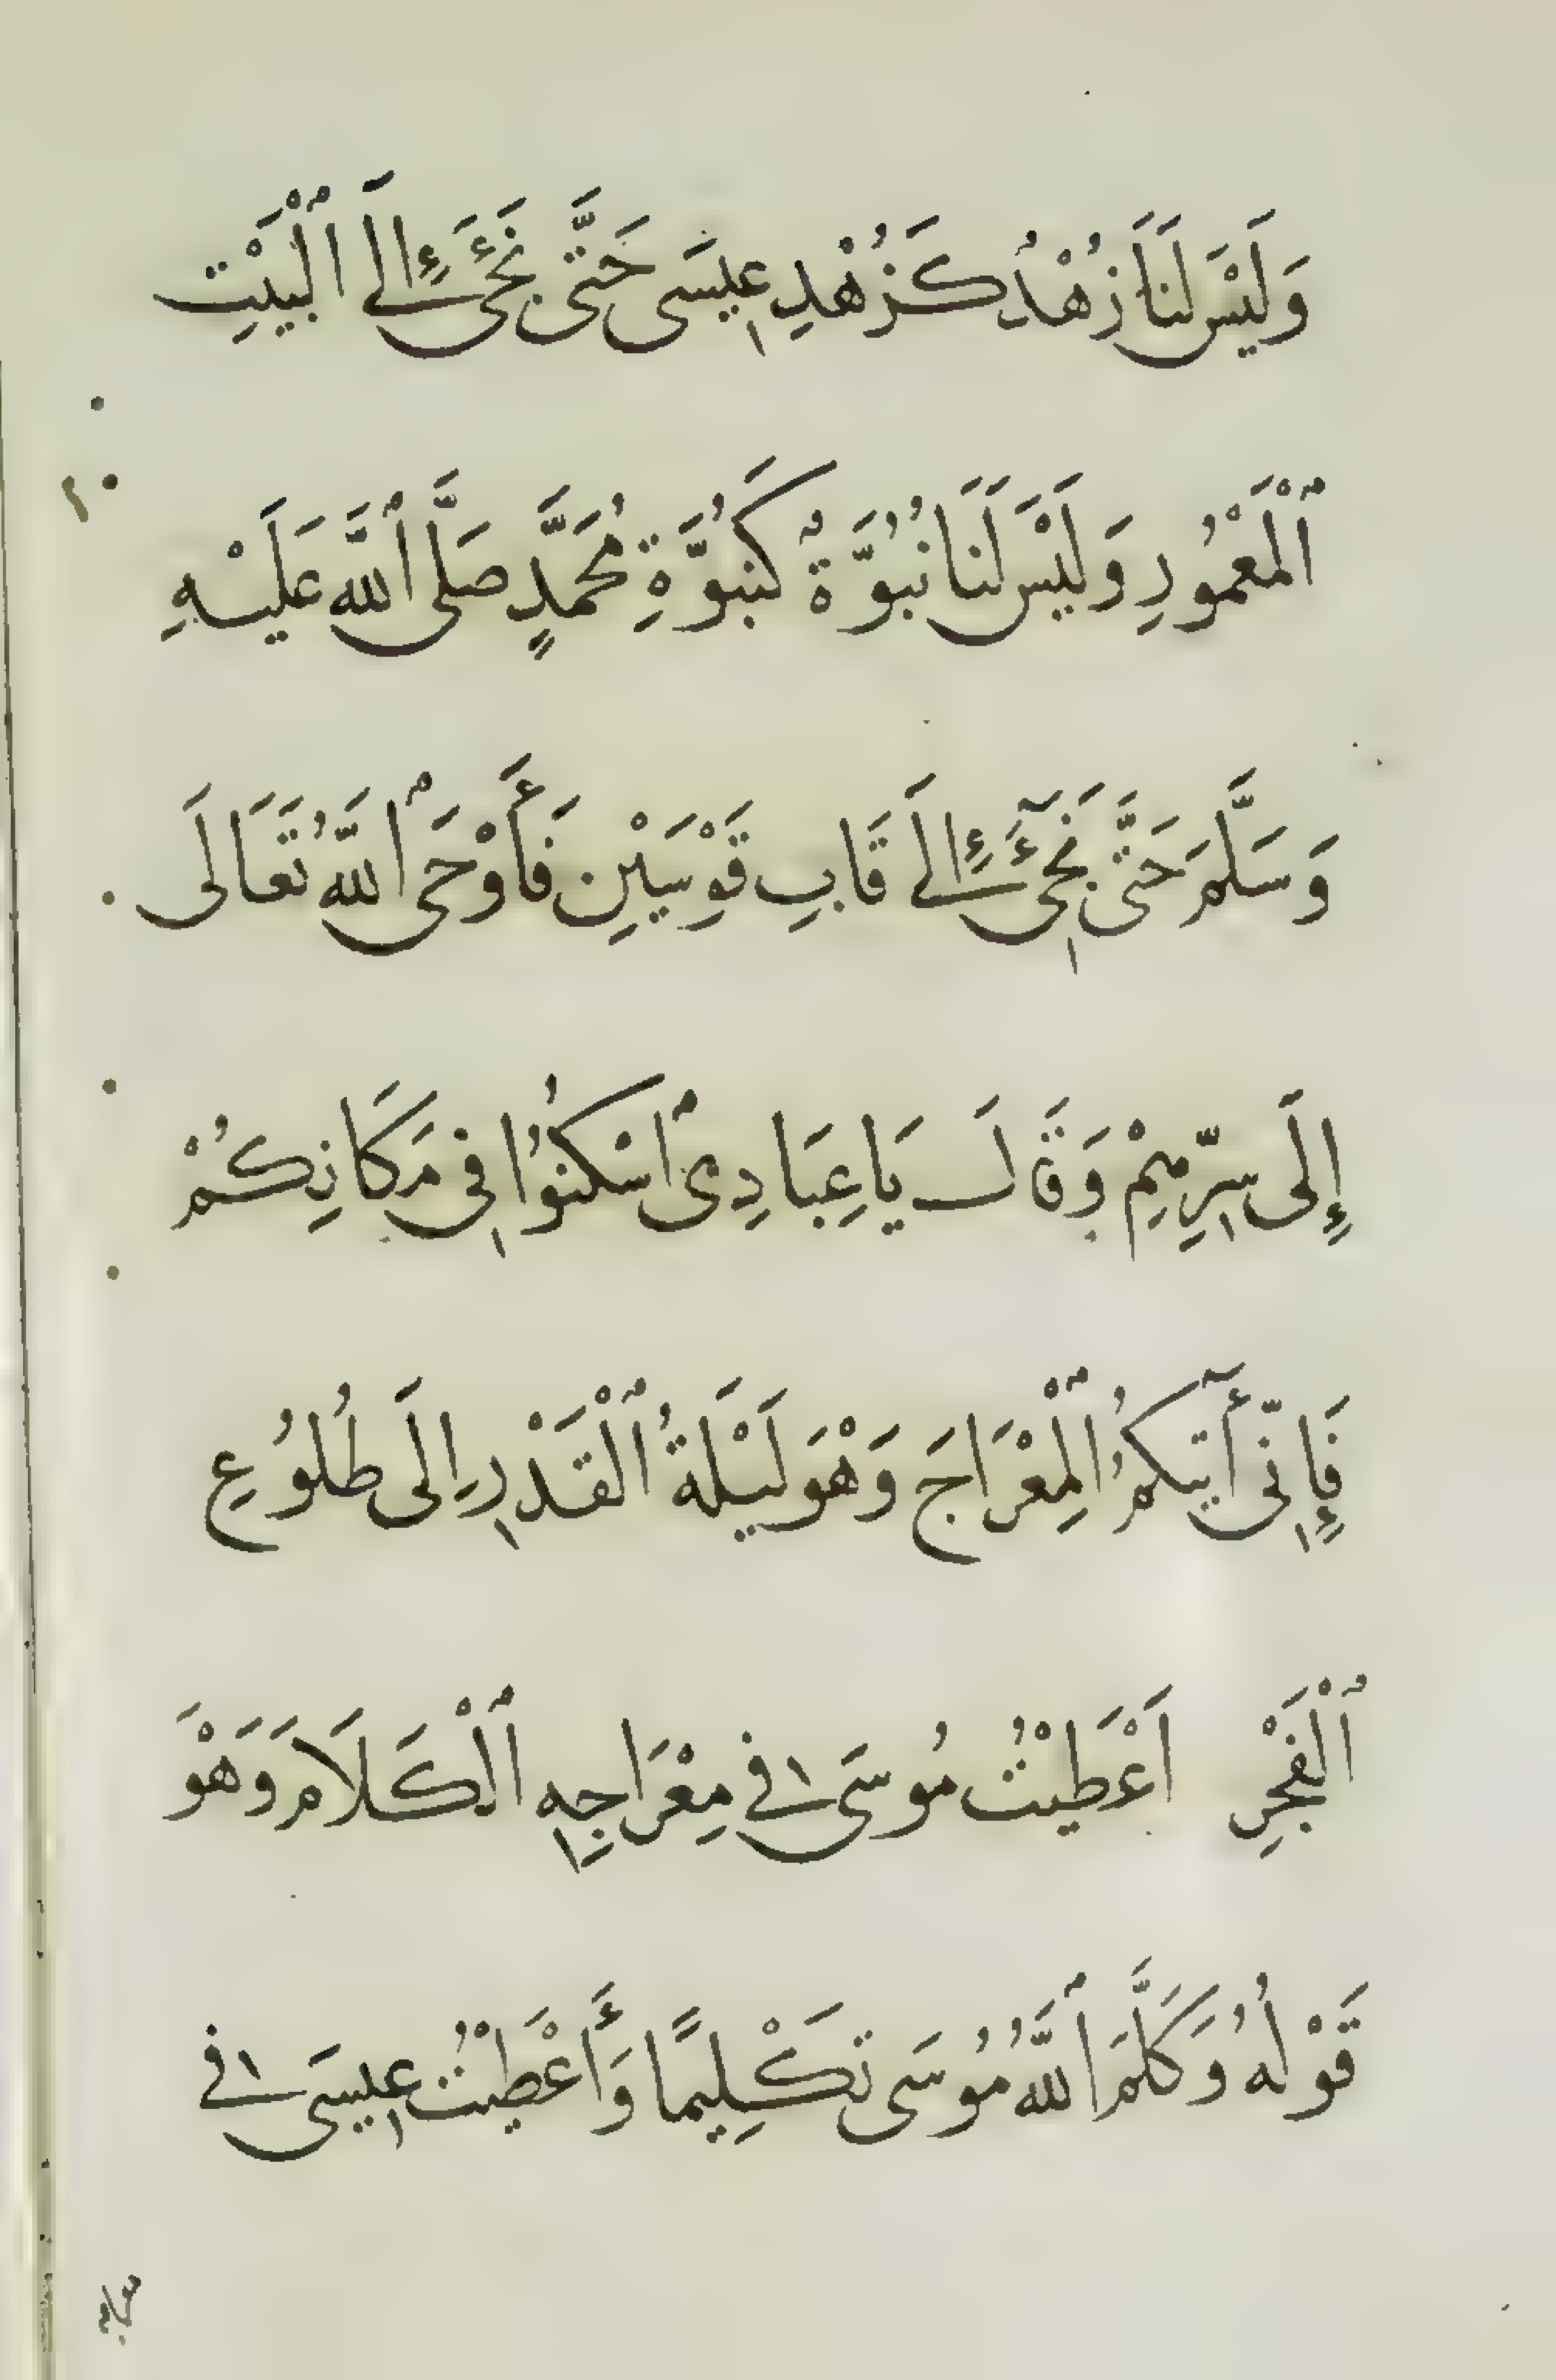 وَلَيْسَ لَنَا زُهْدٌ كَزُهْدِ عِيسَى حَتَّى نَجِىءَ إِلَى ٱلْبَيْتِ
ٱلْمَعْمُورِ وَلَيْسَ لَنَا نُبُوَّةٌ كَنُبُوَّةِ مُحَمَّدٍ صَلَّى ٱللَّهُ عَلَيْهِ
وَسَلَّمَ حَتَّى نَجِىٓءَ إِلَى قَابِ قَوْسَيْنِ فَأَوْحَى ٱللَّهُ تَعَالَى
إِلَى سِرِّهِمْ وَقَالَ يَا عِبَادِى ٱسْكُنُوا فِى مَكَانِكُمْ
فَإِنِّى أٓتِيكُمُ ٱلْمِعْرَاجَ وَهْوَ لَيْلَةُ ٱلْقَدْرِ إِلَى طُلُوعِ
ٱلْفَجْرِ اَعْطَيْتُ مُوسَى فِى مِعْرَاجِهِ ٱلْكَلَامَ وَهْوَ
قَوْلُهُ وَكَلَّمَ ٱللَّهُ مُوسَى تَكْلِيمًا وَأَعْطَيْتُ عِيسَى فِى